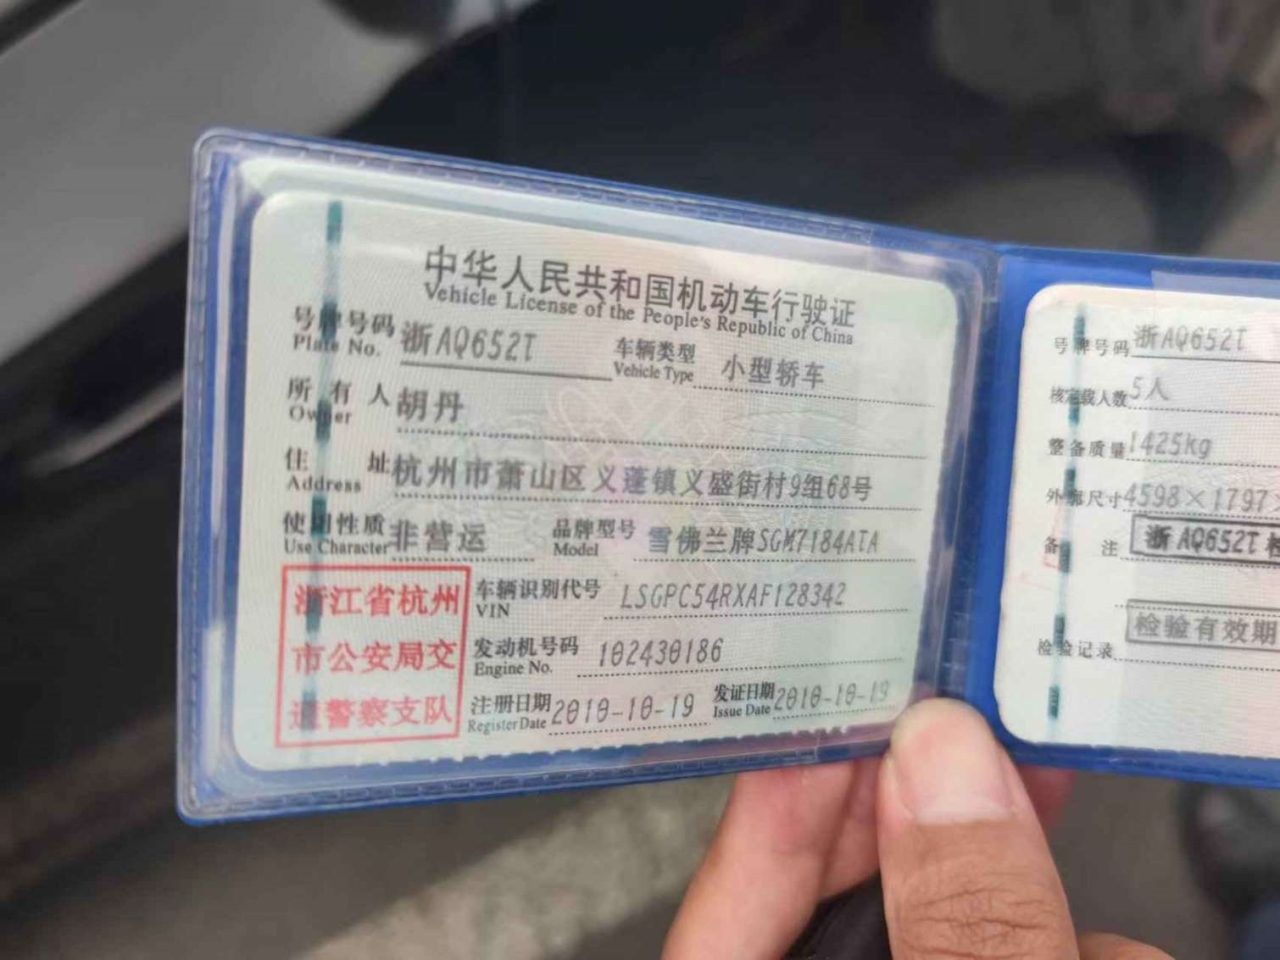 中华人民共和国机动车行驶证
Vehicle License of the People's Republic of China
号牌号码 浙AQ652T 车辆类型 小型轿车
Plate No. Vehicle Type
所有人 胡丹
Owner
住址 杭州市萧山区义蓬镇义盛街村9组68号
Address
使用性质 非营运 品牌型号 雪佛兰牌SGM7184ATA
Use Character Model
浙江省杭州
市公安局交
通警察支队
车辆识别代号 LSGPC54RXAF128342
VIN
发动机号码 102430186
Engine No.
注册日期 2010-10-19 发证日期 2010-10-19
Register Date Issue Date
号牌号码 浙AQ652T
核定载人数 5人
整备质量 1425kg
外廓尺寸 4598×1797×
备注 浙AQ652T
检验有效期
检验记录